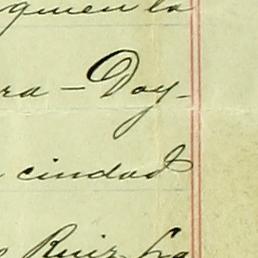 quien la
ra - Doy
ciudad
Ruiz